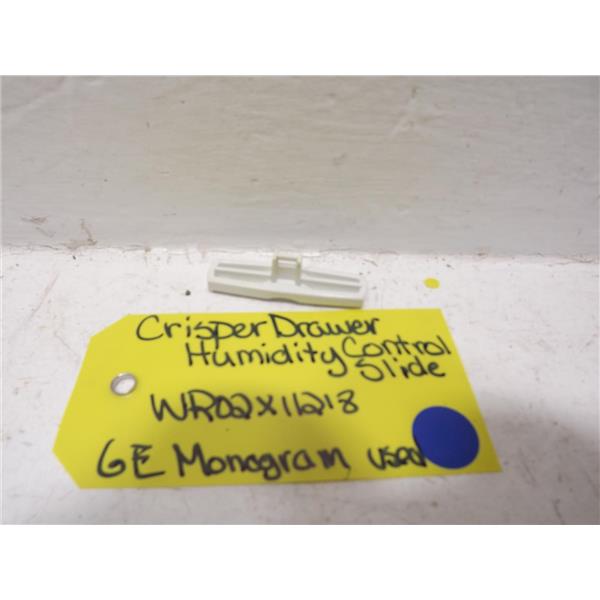 Crisper Drawer
Humidity Control
Slide
WR02X11218
GE Monogram used